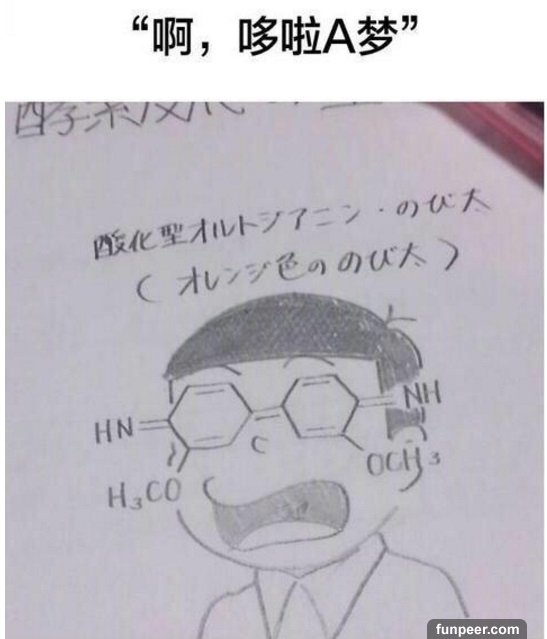 “啊，哆啦A梦”
酸化型オルトジアニシン・のび太
(オレンジ色ののび太)
HN
NH
H₃CO
OCH₃
funpeer.com